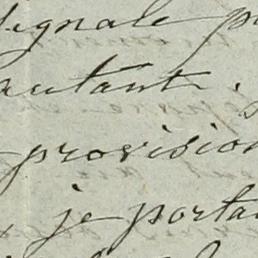 signale p
autant. j
provision
je porta